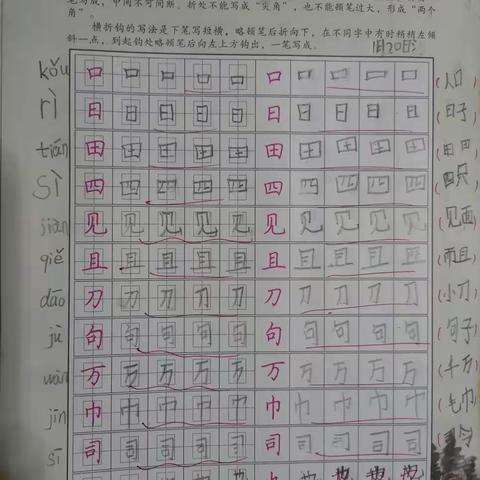 写成,中间不可间断。折处不能写成“尖角”,也不能顿笔过大,形成“两个
角”。
横折钩的写法是下笔写短横,略顿笔后折向下,在不同字中有时稍稍左倾
斜一点,到起钩处略顿笔后向左上方钩出,一笔写成。
1月20日
kǒu 口 口 口 口 口 口 口 口 口 口 (人口
rì 日 日 日 日 日 日 日 日 日 日 (日子
tián 田 田 田 田 田 田 田 田 田 田
sì 四 四 四 四 四 四 四 四 四 四 (四只
jiàn 见 见 见 见 见 见 见 见 见 见 (见面
qiě 且 且 且 且 且 且 且 且 且 且 (而且
dāo 刀 刀 刀 刀 刀 刀 刀 刀 刀 刀 (小刀
jù 句 句 句 句 句 句 句 句 句 句 (句子
wàn 万 万 万 万 万 万 万 万 万 万 (千万
jīn 巾 巾 巾 巾 巾 巾 巾 巾 巾 巾 (毛巾
sī 司 司 司 司 司 司 司 司 司 司